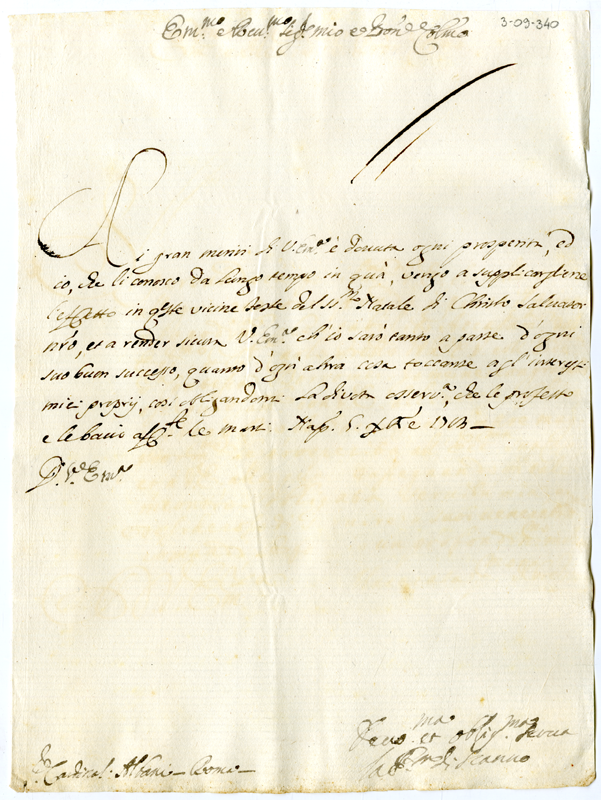 3-09-340
Em.mo e Reu.mo Sig.r mio e Pron.e Colmo
Ai gran meriti di V.Em.a è douuta ogni prosperità, ed
io, che li conosco da lungo tempo in quà, vengo a supplicargliene
l'effetto in q.ste vicine feste del SS.mo Natale di Christo Saluator
nro, et a render sicura V.Em.a ch'io sarò tanto a parte d'ogni
suo buon successo, quanto d'ogn'altra cosa toccante agl'interessi
miei proprij, così obligandomi la diuota osseru.a, che le professo
e le bacio aff.te le mani. Nap. 5. Xbre 1703
D. V.a Em.a
Deuo.ma et oblig.ma Serua
La P. di Scanno
S.r Cardinal: Albani - Roma -